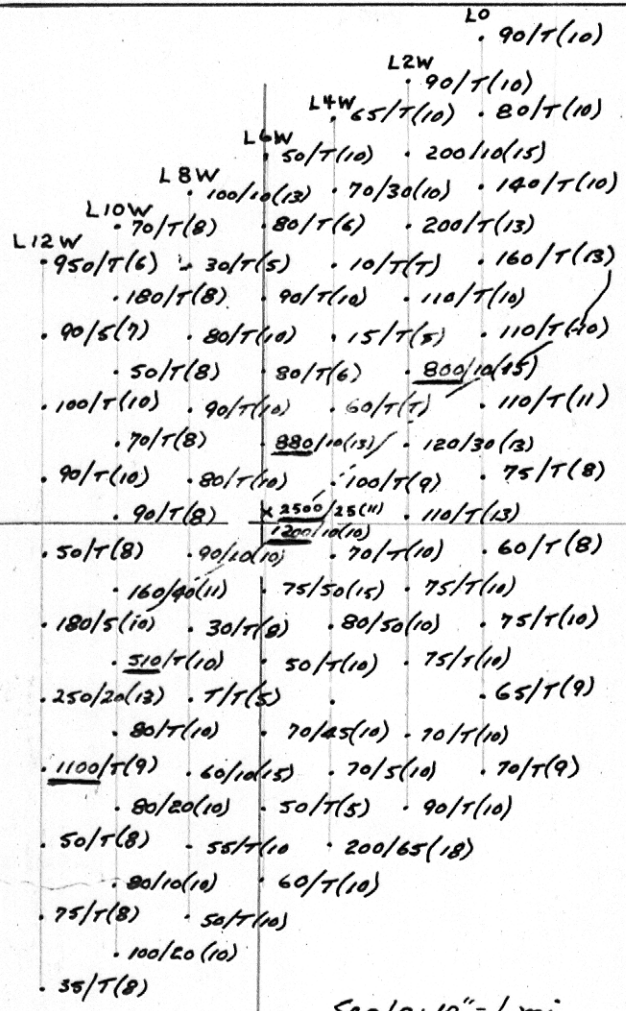 L0
90/T(10)
L2W
90/T(10)
L4W 65/T(10) 80/T(10)
L6W
50/T(10) 200/10(15)
L8W
100/10(13) 70/30(10) 140/T(10)
L10W
70/T(8) 80/T(6) 200/T(13)
L12W
950/T(6) 30/T(5) 10/T(7) 160/T(13)
180/T(8) 90/T(10) 110/T(10)
90/5(7) 80/T(10) 15/T(5) 110/T(10)
50/T(8) 80/T(6) 800/10(15)
100/T(10) 90/T(10) 60/T(7) 110/T(11)
70/T(8) 880/10(13) 120/30(13)
90/T(10) 80/T(10) 100/T(9) 75/T(8)
90/T(8) x 2500/25(11) 110/T(13)
1200/10(10)
50/T(8) 90/20(10) 70/T(10) 60/T(8)
160/40(11) 75/50(15) 75/T(10)
180/5(10) 30/T(8) 80/50(10) 75/T(10)
510/T(10) 50/T(10) 75/T(10)
250/20(13) T/T(5) 65/T(9)
80/T(10) 70/45(10) 70/T(10)
1100/T(9) 60/10(15) 70/5(10) 70/T(9)
80/20(10) 50/T(5) 90/T(10)
50/T(8) 55/T(10 200/65(18)
80/10(10) 60/T(10)
75/T(8) 50/T(10)
100/20(10)
35/T(8)